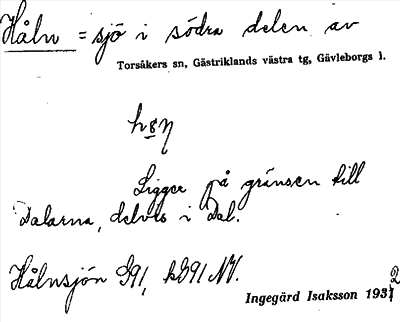 Håln = sjö i södra delen av
Torsåkers sn, Gästriklands västra tg, Gävleborgs l.
Ligger på gränsen till
Dalarna, delvis i Dal.
Hålnsjön G91, kG91 NV.
Ingegärd Isaksson 1932